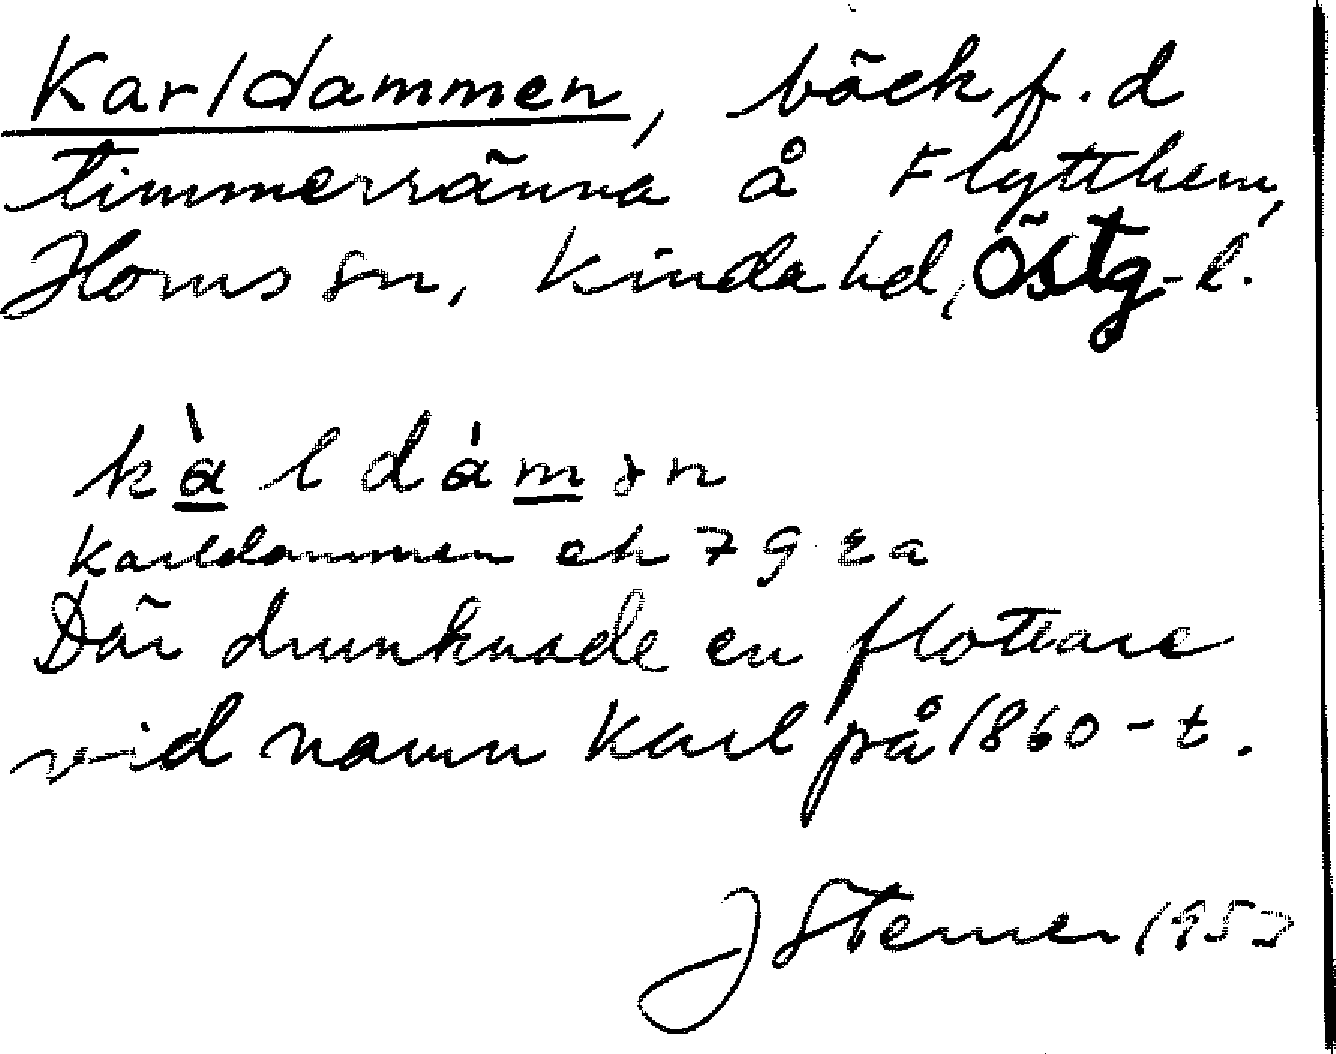 Karldammen, bäck f.d
timmerränna å Flytthem,
Horns sn, Kinda hd, Östg-l.
kàldámən
Karldammen ek 7 9 2 a
Där drunknade en flottare
vid namn Karl på 1860-t.
J Sterner 1953